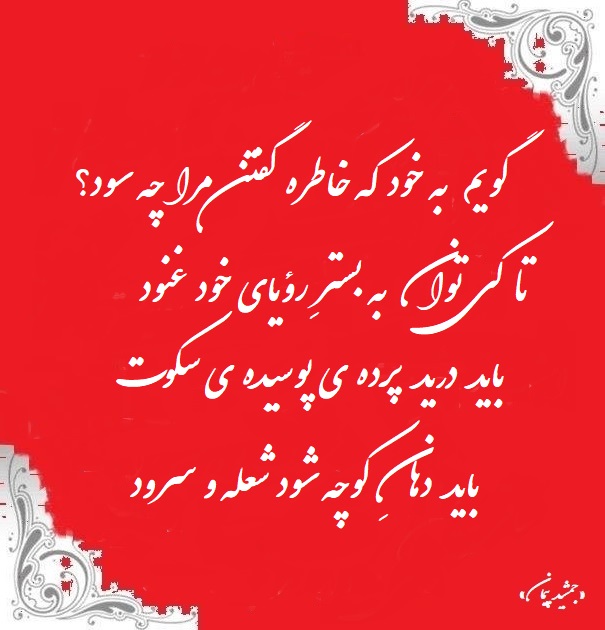 گویم به خود که خاطره گفتن مرا چه سود؟
تا کی توان به بسترِ رؤیای خود غنود
باید درید پرده ی پوسیده ی سکوت
باید دهانِ کوچه شود شعله و سرود
«جمشید پیمان»